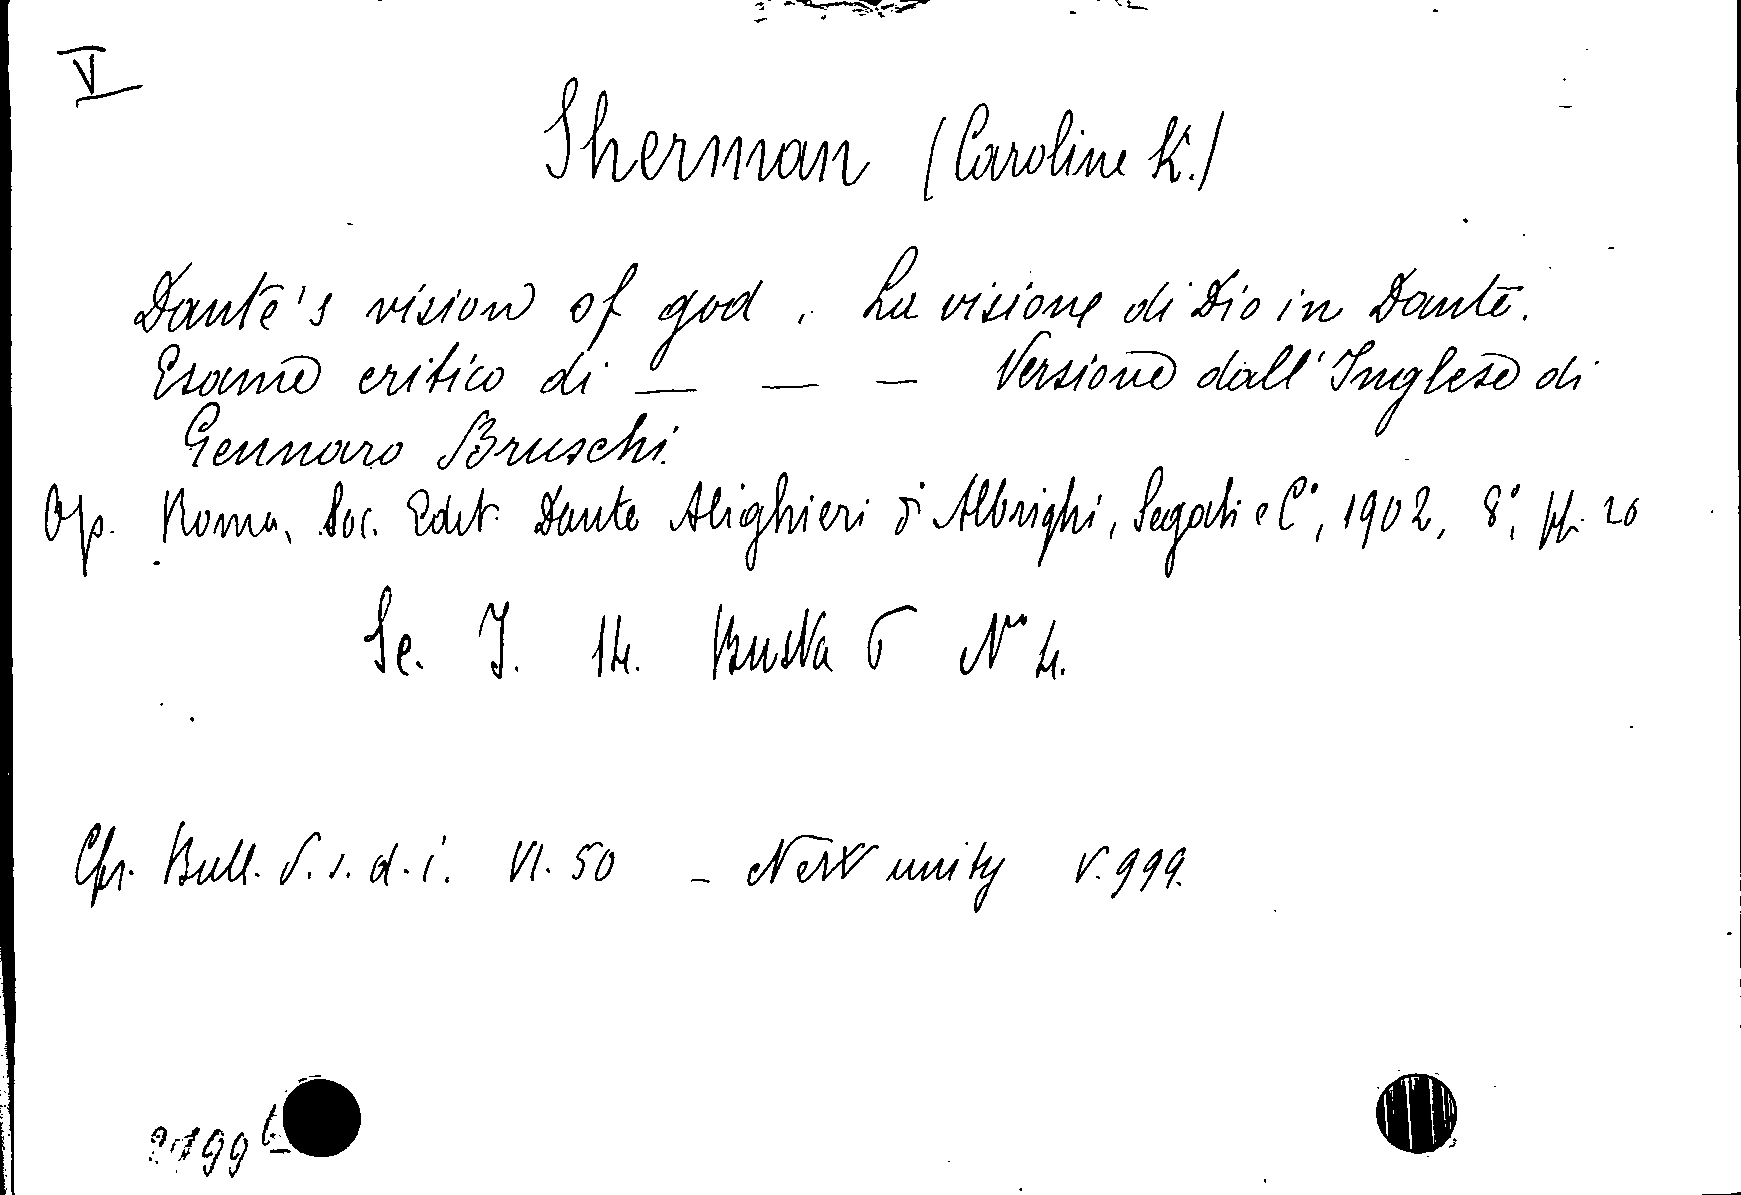 V
Sherman (Caroline K.)
Dante's vision of god. La visione di Dio in Dante.
Esame critico di — — — Versione dall'Inglese di
Gennaro Bruschi.
Op. Roma, Soc. Edit. Dante Alighieri di Albrighi, Segati e C°, 1902, 8°, pp. 20
Se. I. 14. Busta 6 N° 4.
Cfr. Bull. S. s. d. i. VI. 50 - New unity V. 999.